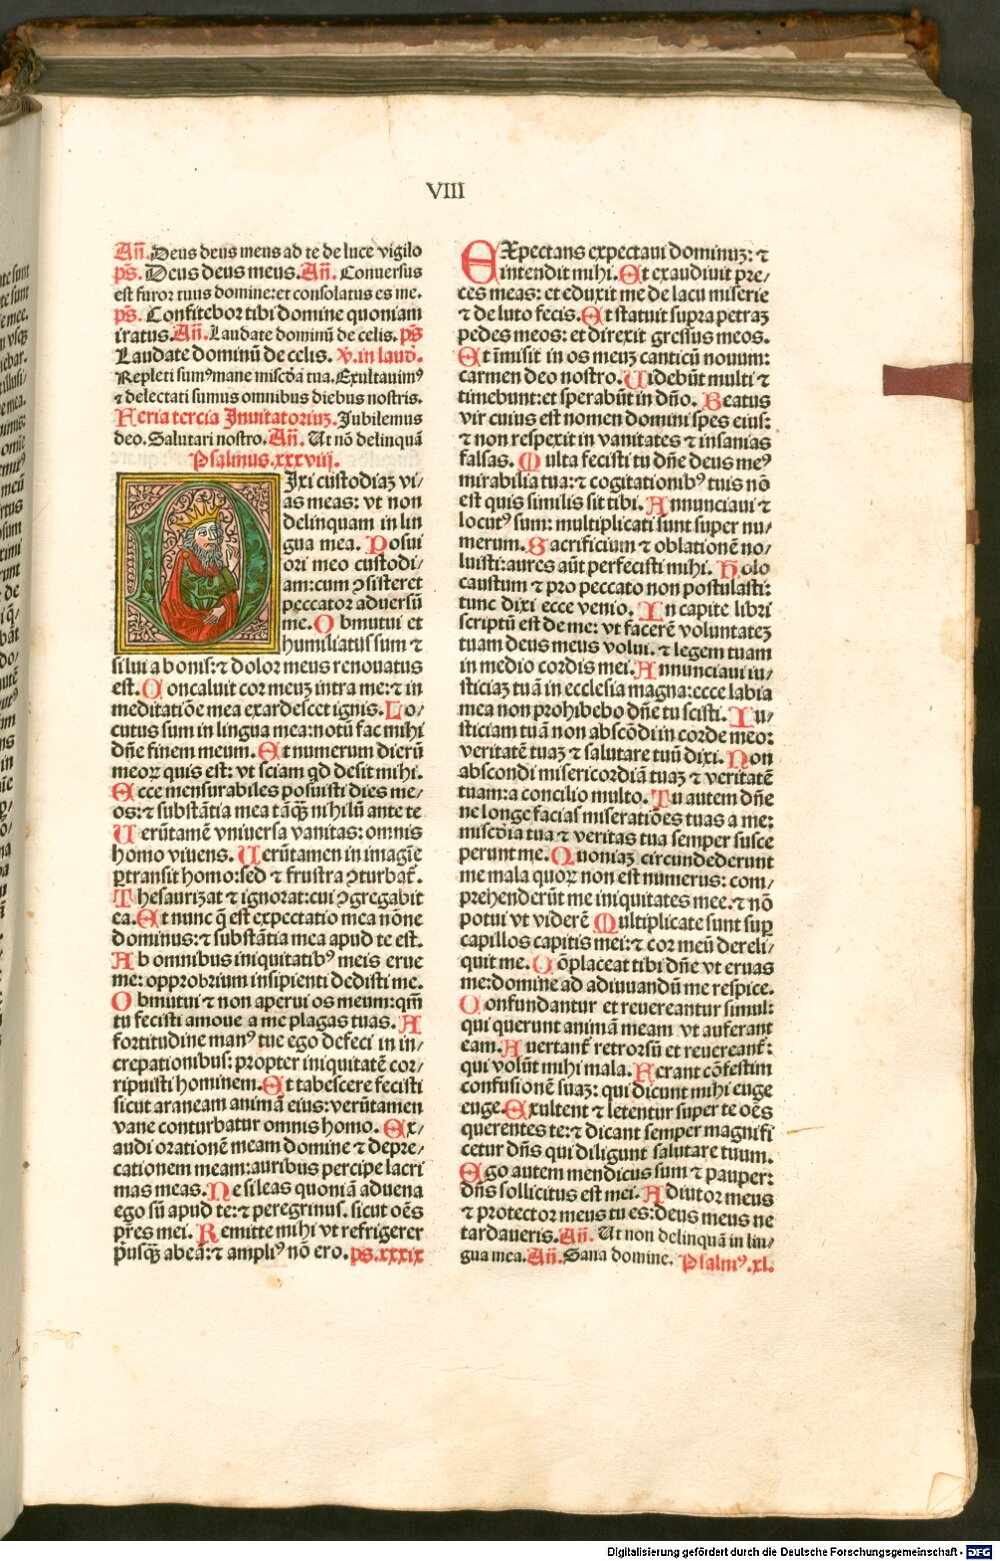 VIII
Añ. Deus deus meus ad te de luce vigilo
ps̄. Deus deus meus. Añ. Conuersus
est furor tuus domine: et consolatus es me.
ps̄. Confitebor tibi domine quoniam
iratus. Añ. Laudate dominū de celis. ps̄
Laudate dominū de celis. ℣. in laud̄.
Repleti sumꝰ mane misc̄dia tua. Exultauimꝰ
⁊ delectati sumus omnibus diebus nostris.
Feria tercia Inuitatoriuꝫ. Jubilemus
deo. Salutari nostro. Añ. Ut nō delinquā
Psalmus. xxxviij.
DIxi custodiaꝫ vi/
as meas: vt non
delinquam in lin
gua mea. Posui
ori meo custodi/
am: cum ꝯsisteret
peccator aduersū
me. Obmutui et
humiliatus sum ⁊
silui a bonis: ⁊ dolor meus renouatus
est. Concaluit cor meuꝫ intra me: ⁊ in
meditatiōe mea exardescet ignis. Lo/
cutus sum in lingua mea: notū fac mihi
dn̄e finem meum. Et numerum dierū
meoꝝ quis est: vt sciam qd̄ desit mihi.
Ecce mensurabiles posuisti dies me/
os: ⁊ substātia mea tāqꝫ nihilū ante te
Uerūtamē vniuersa vanitas: omnis
homo viuens. Uerūtamen in imagīe
ꝑtransit homo: sed ⁊ frustra ꝯturbat̄.
Thesaurizat ⁊ ignorat: cui ꝯgregabit
ea. Et nunc q̄ est expectatio mea nōne
dominus: ⁊ substātia mea apud te est.
Ab omnibus iniquitatibꝰ meis erue
me: opprobrium insipienti dedisti me.
Obmutui ⁊ non aperui os meum: qm̄
tu fecisti amoue a me plagas tuas. A
fortitudine manꝰ tue ego defeci in in/
crepationibus: propter iniquitatē cor/
ripuisti hominem. Et tabescere fecisti
sicut araneam animā eius: verūtamen
vane conturbatur omnis homo. Ex/
audi orationē meam domine ⁊ depre/
cationem meam: auribus percipe lacri
mas meas. Ne sileas quoniā aduena
ego sū apud te: ⁊ peregrinus. sicut oēs
pr̄es mei. Remitte mihi vt refrigerer
p̄usqꝫ abeā: ⁊ ampliꝰ nō ero. ps. xxxix
EXpectans expectaui dominuꝫ: ⁊
intendit mihi. Et exaudiuit pre/
ces meas: et eduxit me de lacu miserie
⁊ de luto fecis. Et statuit supra petraꝫ
pedes meos: et direxit gressus meos.
Et īmisit in os meuꝫ canticū nouum:
carmen deo nostro. Uidebūt multi ⁊
timebunt: et sperabūt in dn̄o. Beatus
vir cuius est nomen domini spes eius:
⁊ non respexit in vanitates ⁊ insanias
falsas. Multa fecisti tu dn̄e deus meꝰ
mirabilia tua: ⁊ cogitationibꝰ tuis nō
est quis similis sit tibi. Annunciaui ⁊
locutꝰ sum: multiplicati sunt super nu/
merum. Sacrificium ⁊ oblationē no/
luisti: aures aūt perfecisti mihi. Holo
caustum ⁊ pro peccato non postulasti:
tunc dixi ecce venio. In capite libri
scriptū est de me: vt facerē voluntateꝫ
tuam deus meus volui. ⁊ legem tuam
in medio cordis mei. Annunciaui iu/
sticiaꝫ tuā in ecclesia magna: ecce labia
mea non prohibebo dn̄e tu scisti. Iu/
sticiam tuā non abscōdi in corde meo:
veritatē tuaꝫ ⁊ salutare tuū dixi. Non
abscondi misericordiā tuaꝫ ⁊ veritatē
tuam: a concilio multo. Tu autem dn̄e
ne longe facias miseratiōes tuas a me:
misc̄dia tua ⁊ veritas tua semper susce
perunt me. Quoniaꝫ circundederunt
me mala quoꝝ non est numerus: com/
prehenderūt me iniquitates mee. ⁊ nō
potui vt viderē Multiplicate sunt suꝑ
capillos capitis mei: ⁊ cor meū dereli/
quit me. Cōplaceat tibi dn̄e vt eruas
me: domine ad adiuuandū me respice.
Confundantur et reuereantur simul:
qui querunt animā meam vt auferant
eam. Auertant̄ retrorsū et reuereant̄:
qui volūt mihi mala. Ferant cōfestim
confusionē suaꝫ: qui dicunt mihi euge
euge. Exultent ⁊ letentur super te oēs
querentes te: ⁊ dicant semper magnifi
cetur dn̄s qui diligunt salutare tuum.
Ego autem mendicus sum ⁊ pauper:
dn̄s sollicitus est mei. Adiutor meus
⁊ protector meus tu es: deus meus ne
tardaueris. Añ. Ut non delinquā in lin/
gua mea. Añ. Sana domine. Psalmꝰ. xl.
Digitalisierung gefördert durch die Deutsche Forschungsgemeinschaft - DFG